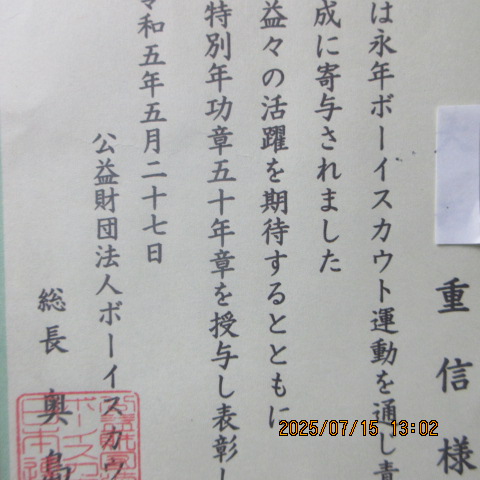 重信様
は永年ボーイスカウト運動を通し青
成に寄与されました
益々の活躍を期待するとともに
特別年功章五十年章を授与し表彰し
令和五年五月二十七日
公益財団法人ボーイスカウ
総長 奥島
2025/07/15 13:02